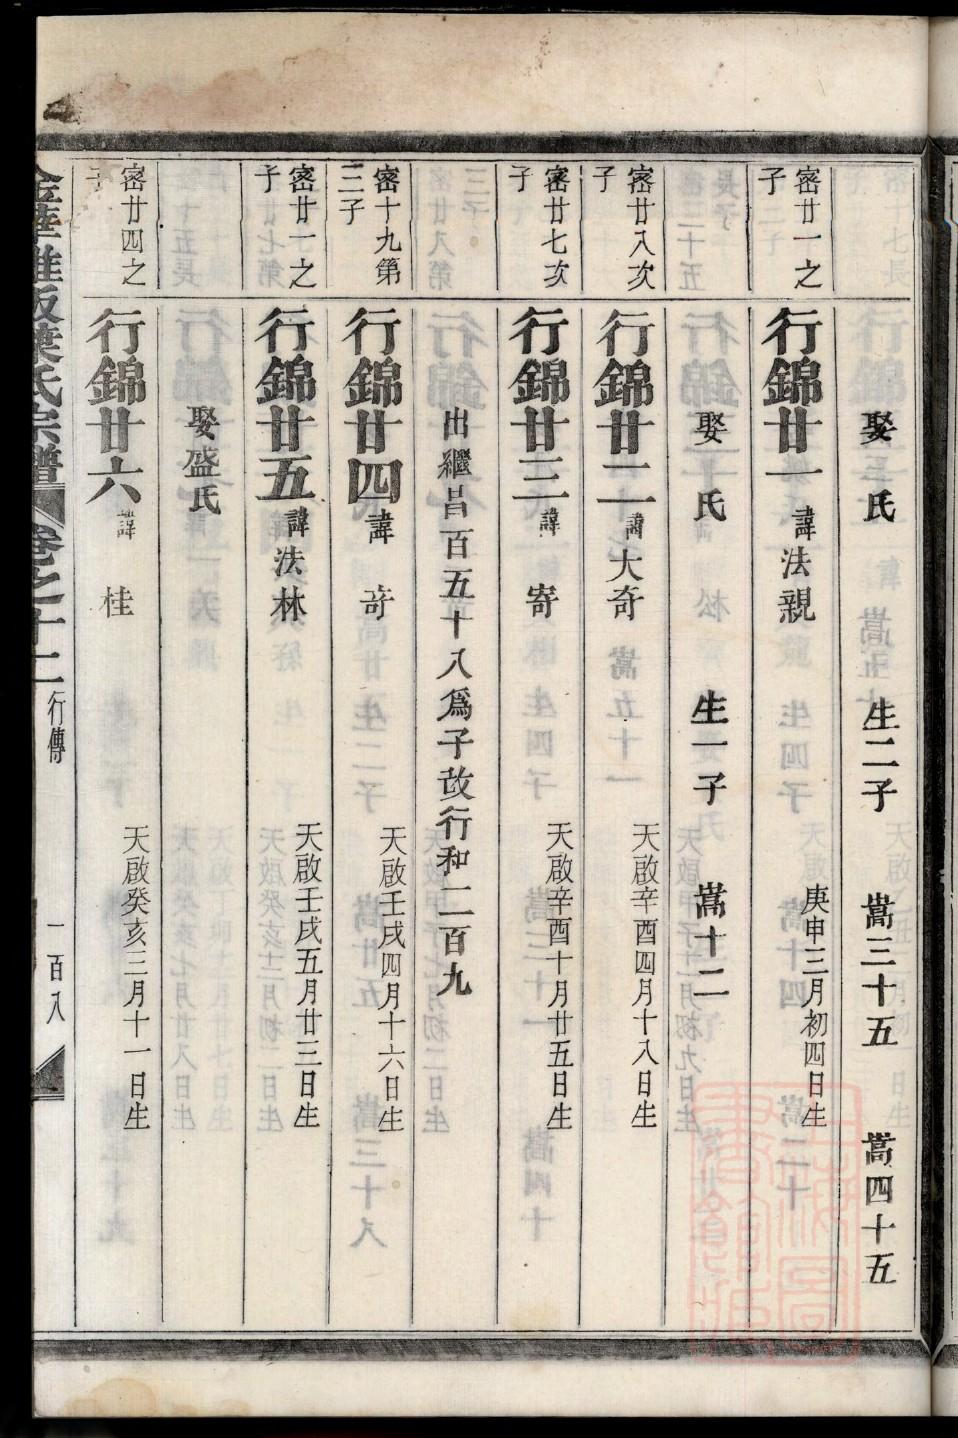 娶 氏 生二子 蒿三十五 蒿四十五
密廿一之子
行錦廿一 諱法親 庚申三月初四日生
娶 氏 生一子 蒿十二
密廿八次子
行錦廿二 諱大奇 天啟辛酉四月十八日生
密廿七次子
行錦廿三 諱寄 天啟辛酉十月廿五日生
出繼昌百五十八爲子故行和二百九
密十九第三子
行錦廿四 諱奇 天啟壬戌四月十六日生
密廿一之子
行錦廿五 諱法林 天啟壬戌五月廿三日生
娶盛氏
密廿四之子
行錦廿六 諱桂 天啟癸亥三月十一日生
葉氏宗譜 卷之十二 行傳 一百八